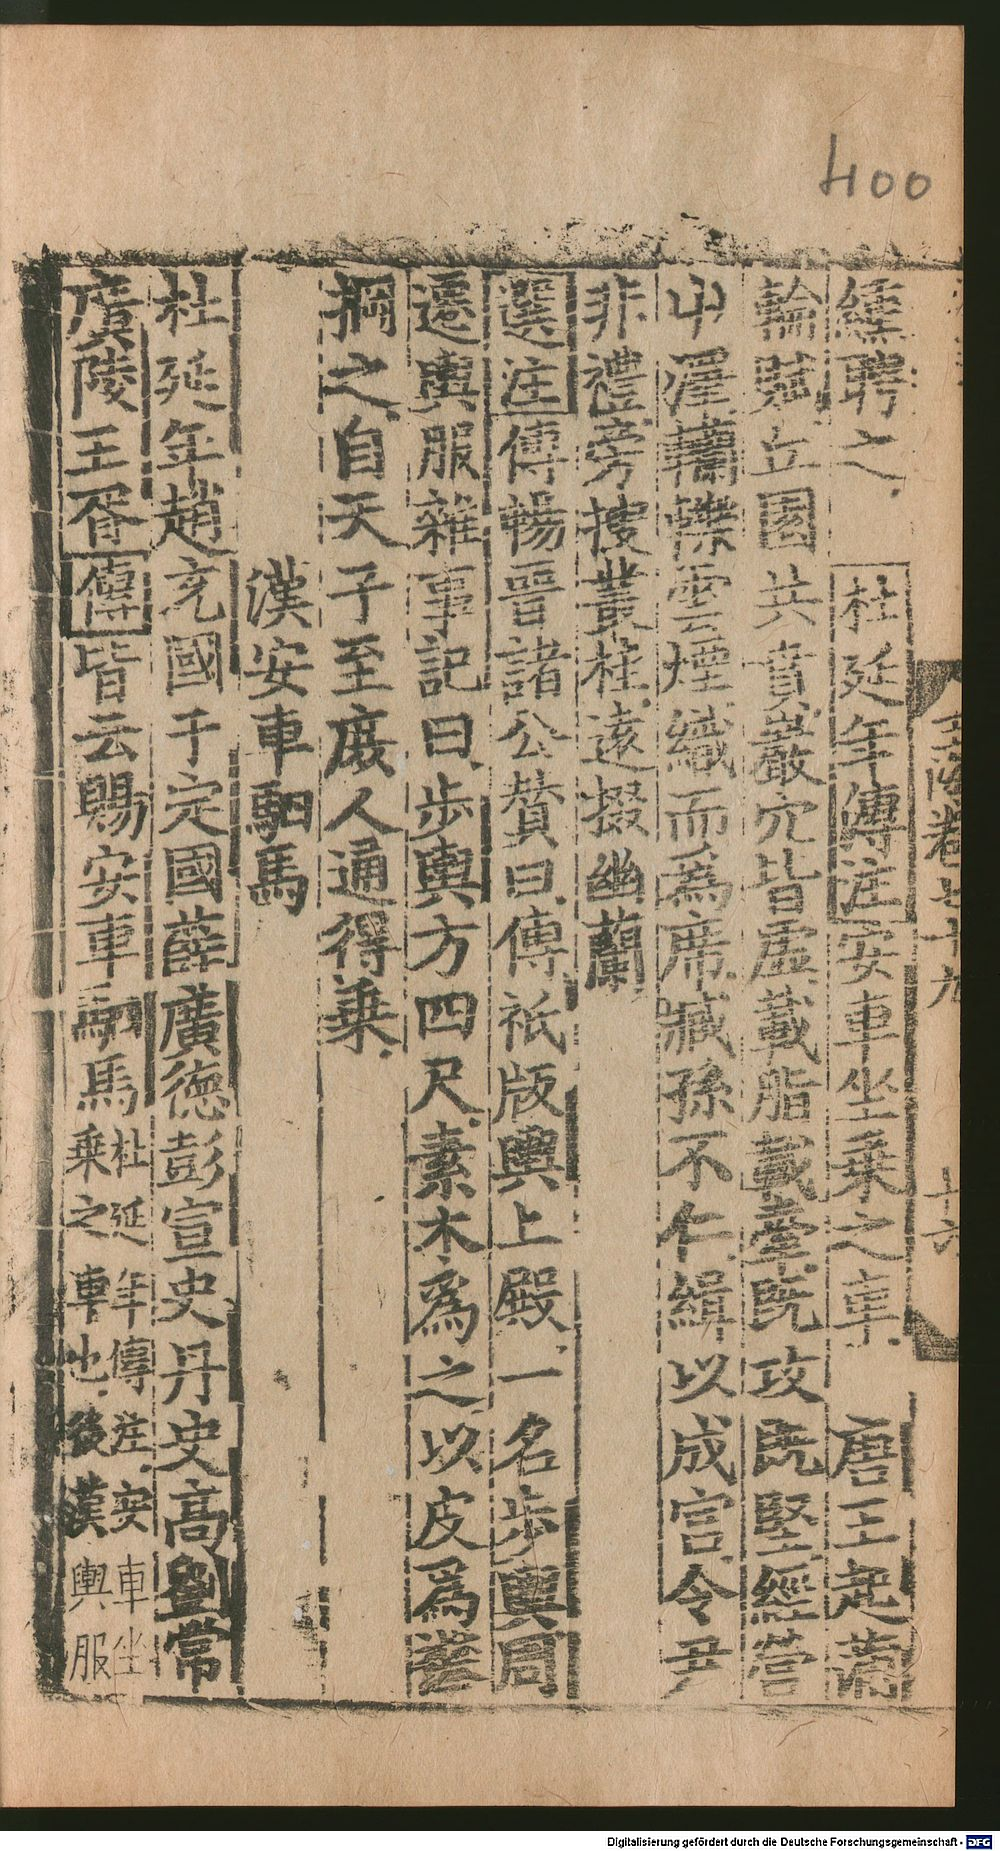 400
纁聘之 杜延年傳注安車坐乘之車 唐王起蒲
輪賦丘園共賁巖穴皆虛載脂載舝旣攻旣堅經營
屮澤轥轢雲煙織而爲席臧孫不仁緝以成官令尹
非禮旁搜叢桂遠掇幽蘭
選注傅暢晉諸公贊曰傅祗版輿上殿一名步輿周
遷輿服雜事記曰步輿方四尺素木爲之以皮爲襻
掆之自天子至庶人通得乘
漢安車駟馬
杜延年趙充國于定國薛廣德彭宣史丹史高劉常
廣陵王胥傳皆云賜安車駟馬杜延年傳注安車坐
乘之車也後漢輿服
玉海卷七十九
十六
Digitalisierung gefördert durch die Deutsche Forschungsgemeinschaft - DFG